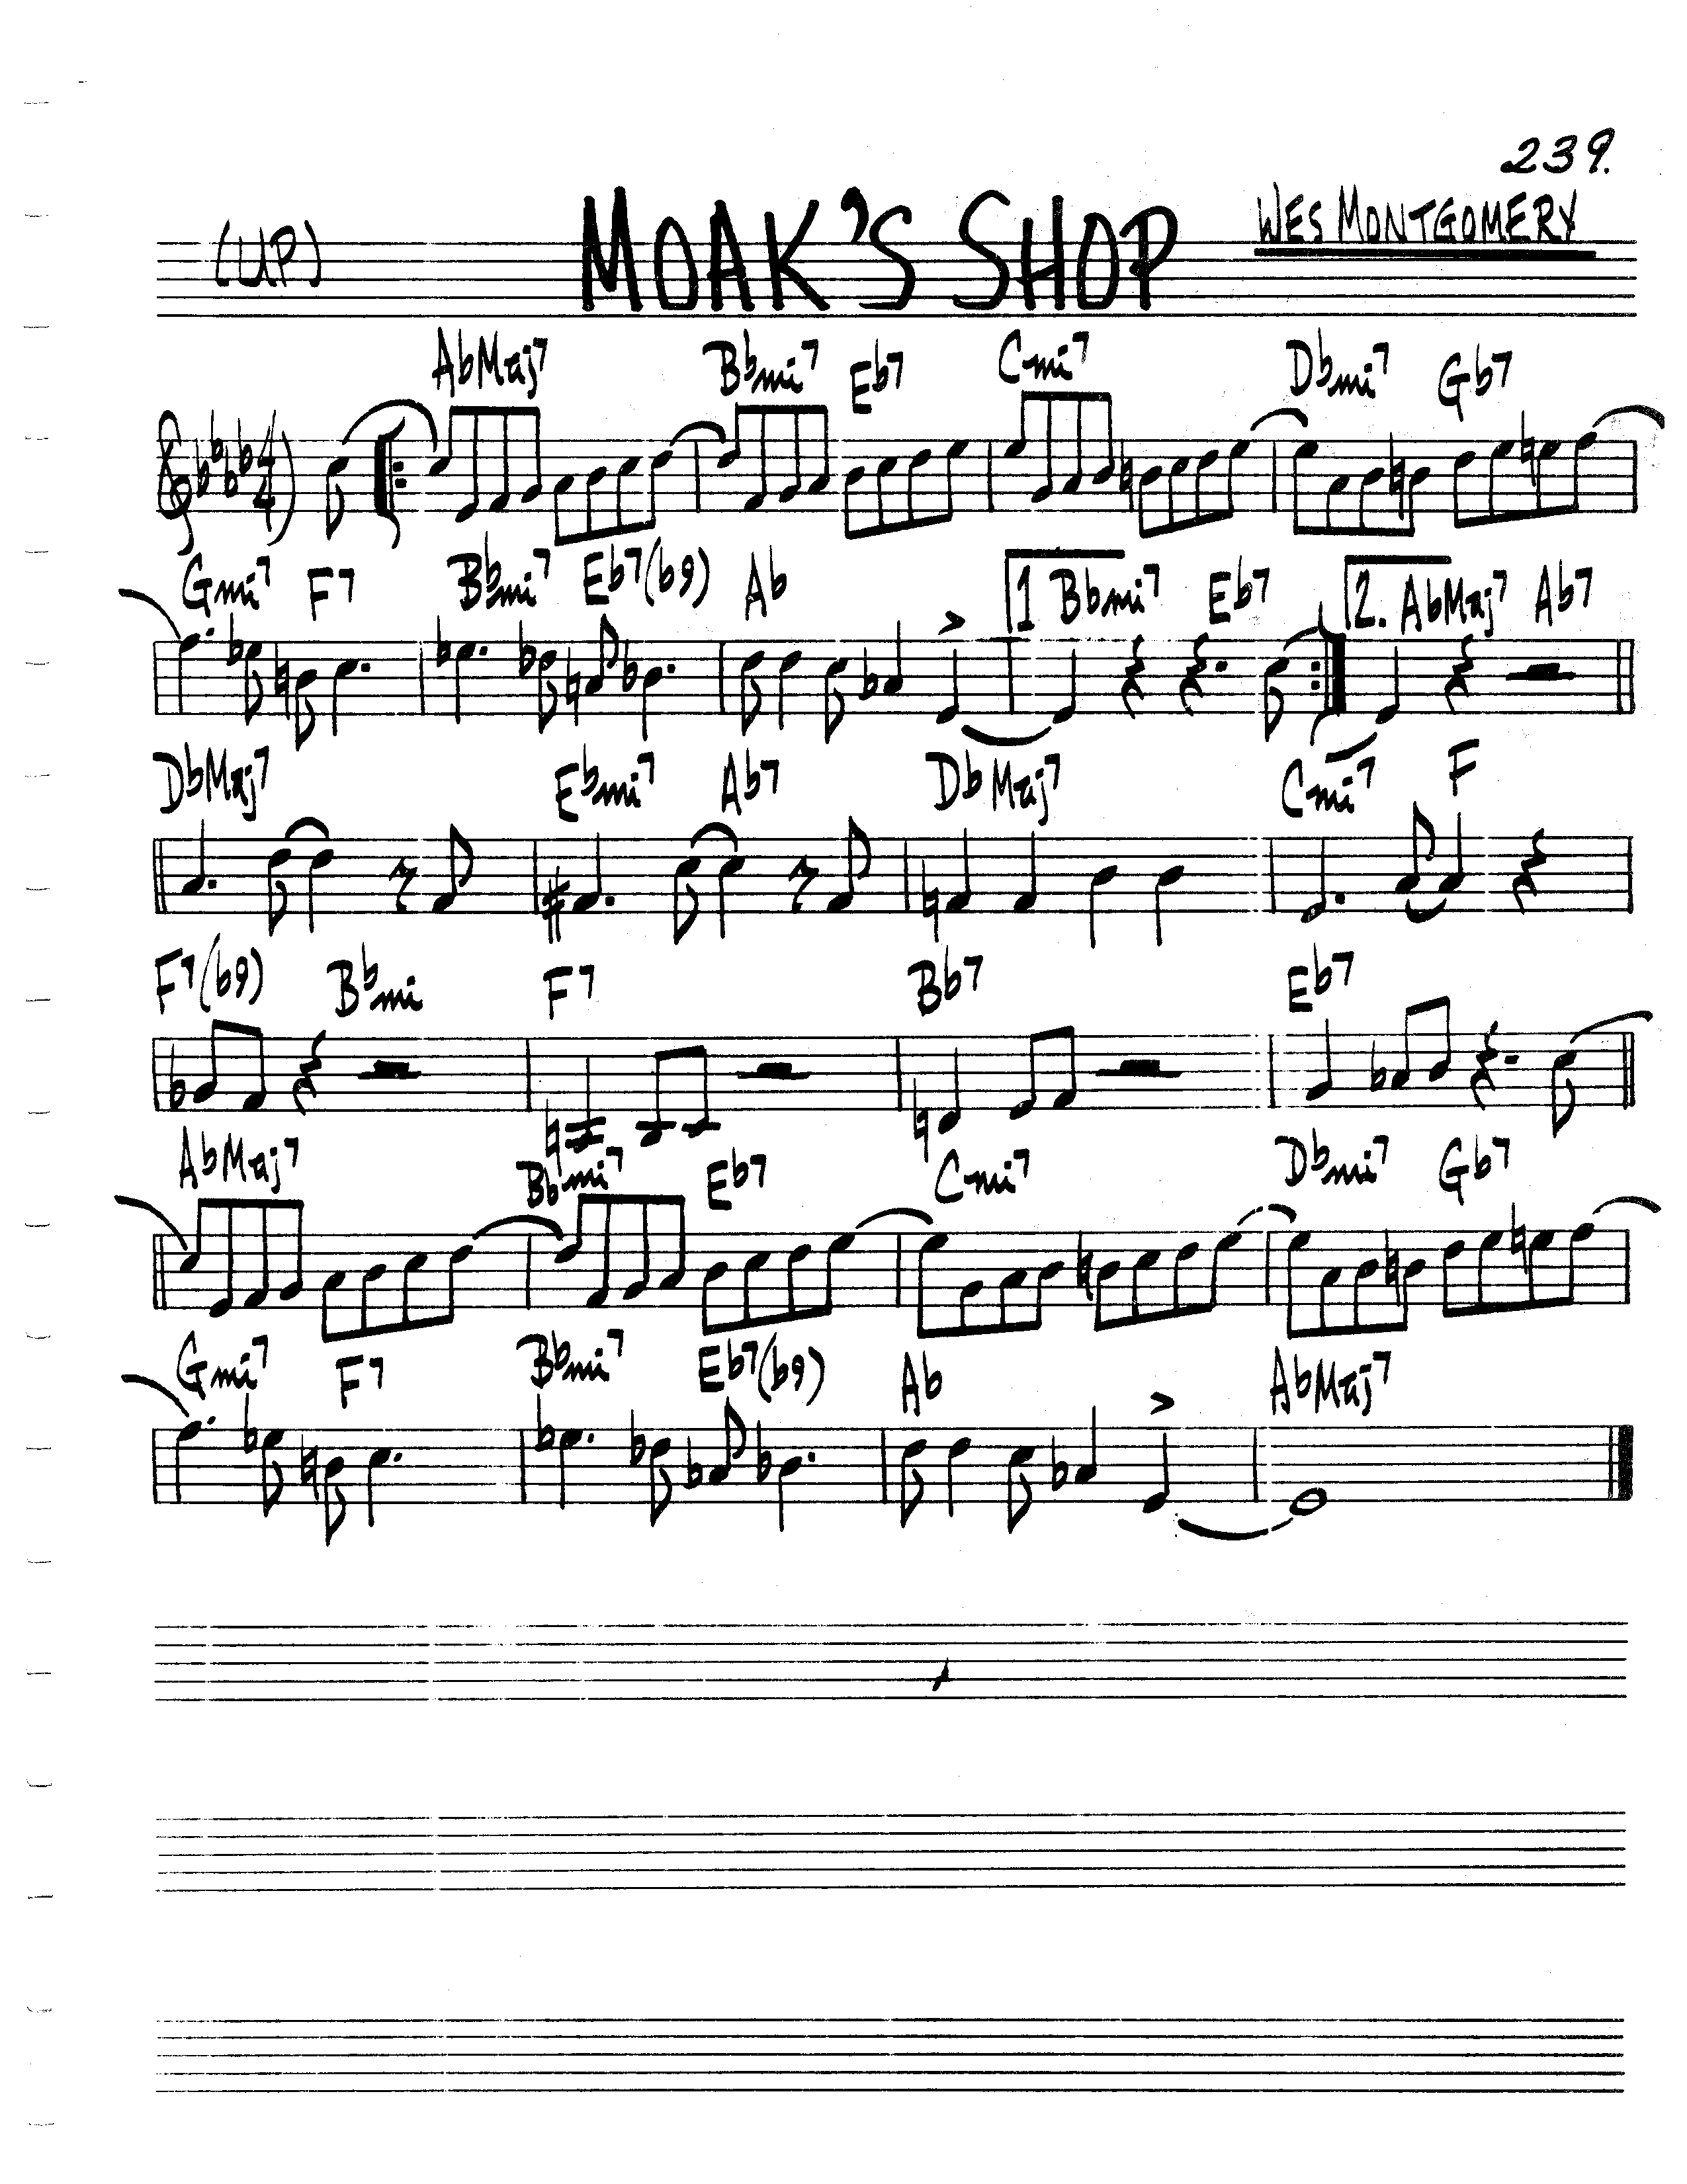 239.
(UP) MOAK'S SHOP WES MONTGOMERY
AbMaj7 Bbmi7 Eb7 Cmi7 Dbmi7 Gb7
4/4
Gmi7 F7 Bbmi7 Eb7(b9) Ab 1 Bbmi7 Eb7 2. AbMaj7 Ab7
DbMaj7 Ebmi7 Ab7 DbMaj7 Cmi7 F
F7(b9) Bbmi F7 Bb7 Eb7
AbMaj7 Bbmi7 Eb7 Cmi7 Dbmi7 Gb7
Gmi7 F7 Bbmi7 Eb7(b9) Ab AbMaj7